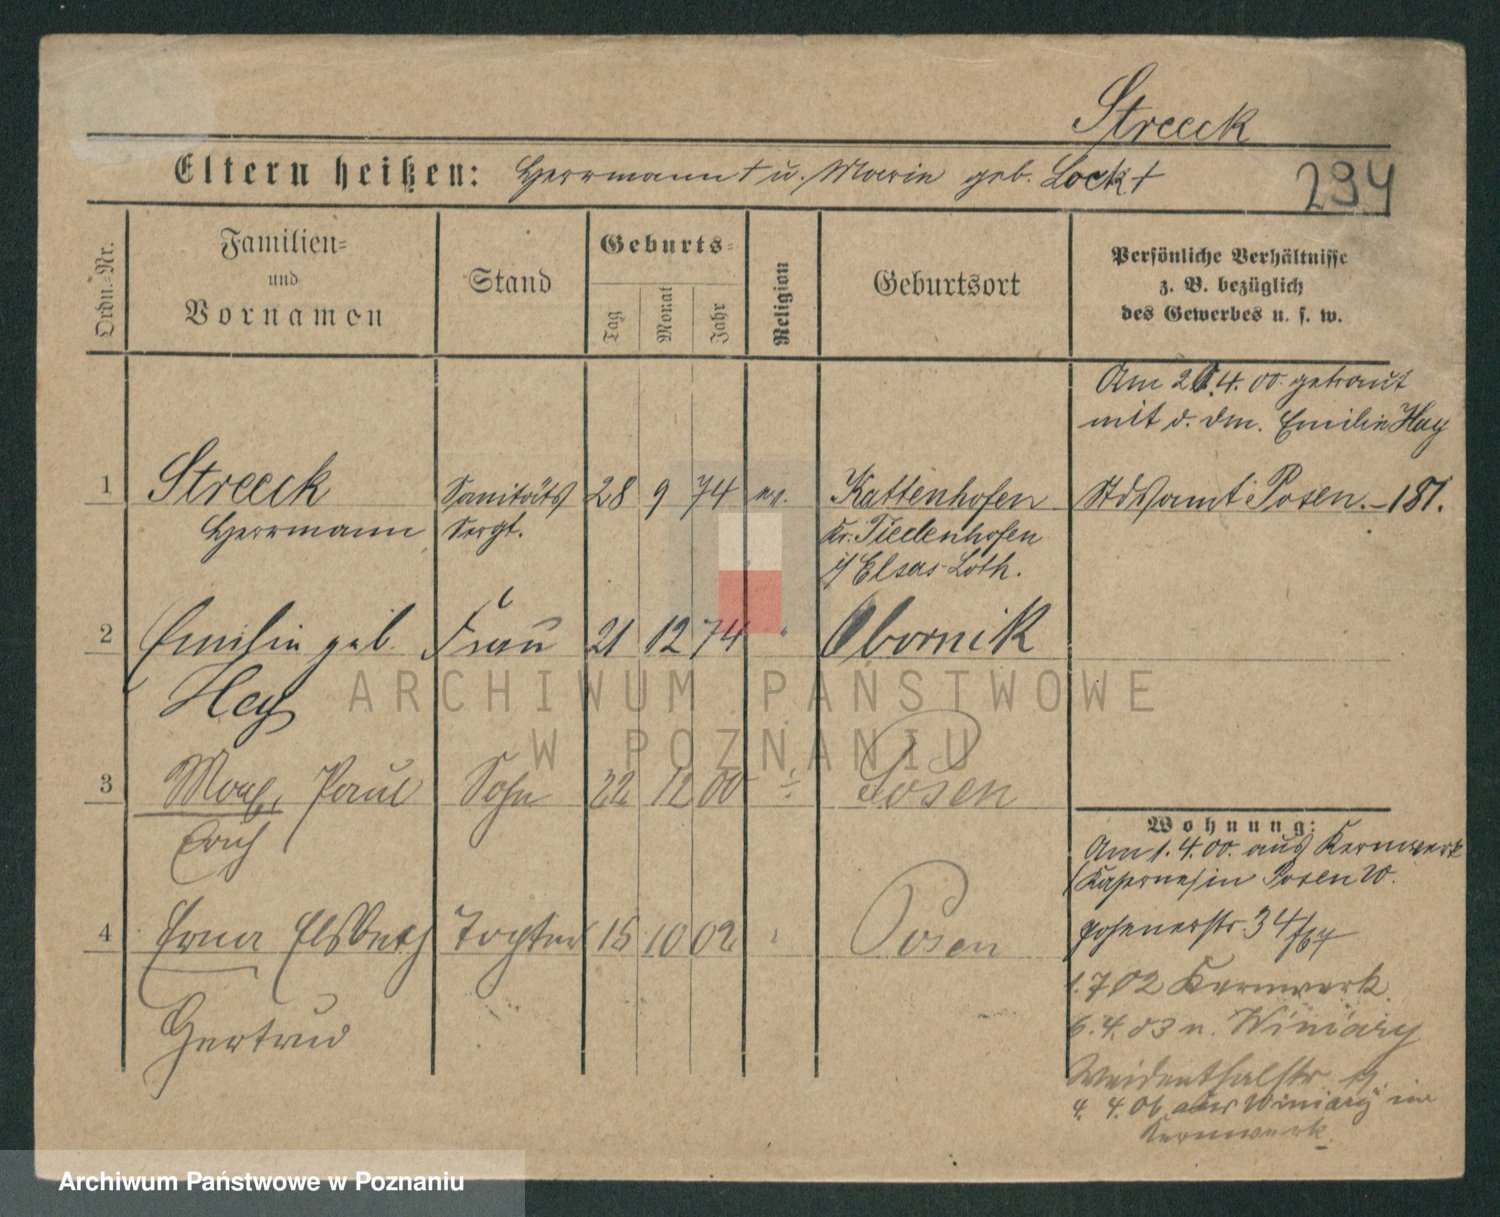 Streeck
Eltern heißen: Herrmann † u. Marie geb. Lock †
294
Ordn.-Nr.
Familien-
und
Vornamen
Stand
Geburts-
Tag
Monat
Jahr
Religion
Geburtsort
Persönliche Verhältnisse
z. B. bezüglich
des Gewerbes u. s. w.
Am 20.4.00. getraut
mit d. dm. Emilie Hay
Stdsamt Posen. - 181.
1 Streeck Sanitäts 28 9 74 ev. Kattenhofen
Herrmann Sergt. Kr. Tiedenhofen
i/ Elsas-Loth.
2 Emilie geb. Frau 21 12 74 " Obornik
Hey
3 Max Paul Sohn 22 12 00 Posen
Erich
4 Erna Elsbeth Tochter 15 10 02 Posen
Gertrud
Wohnung:
Am 1.4.00. aus Kernwerk
(Kaserne) in Posen W.
posenerstr. 34
1.7 02 Kernwerk.
6.4.03 n. Winiary
Weidenthalstr
4. 4. 06 aus Winiary in
Kernwerk.
ARCHIWUM PAŃSTWOWE
W POZNANIU
Archiwum Państwowe w Poznaniu